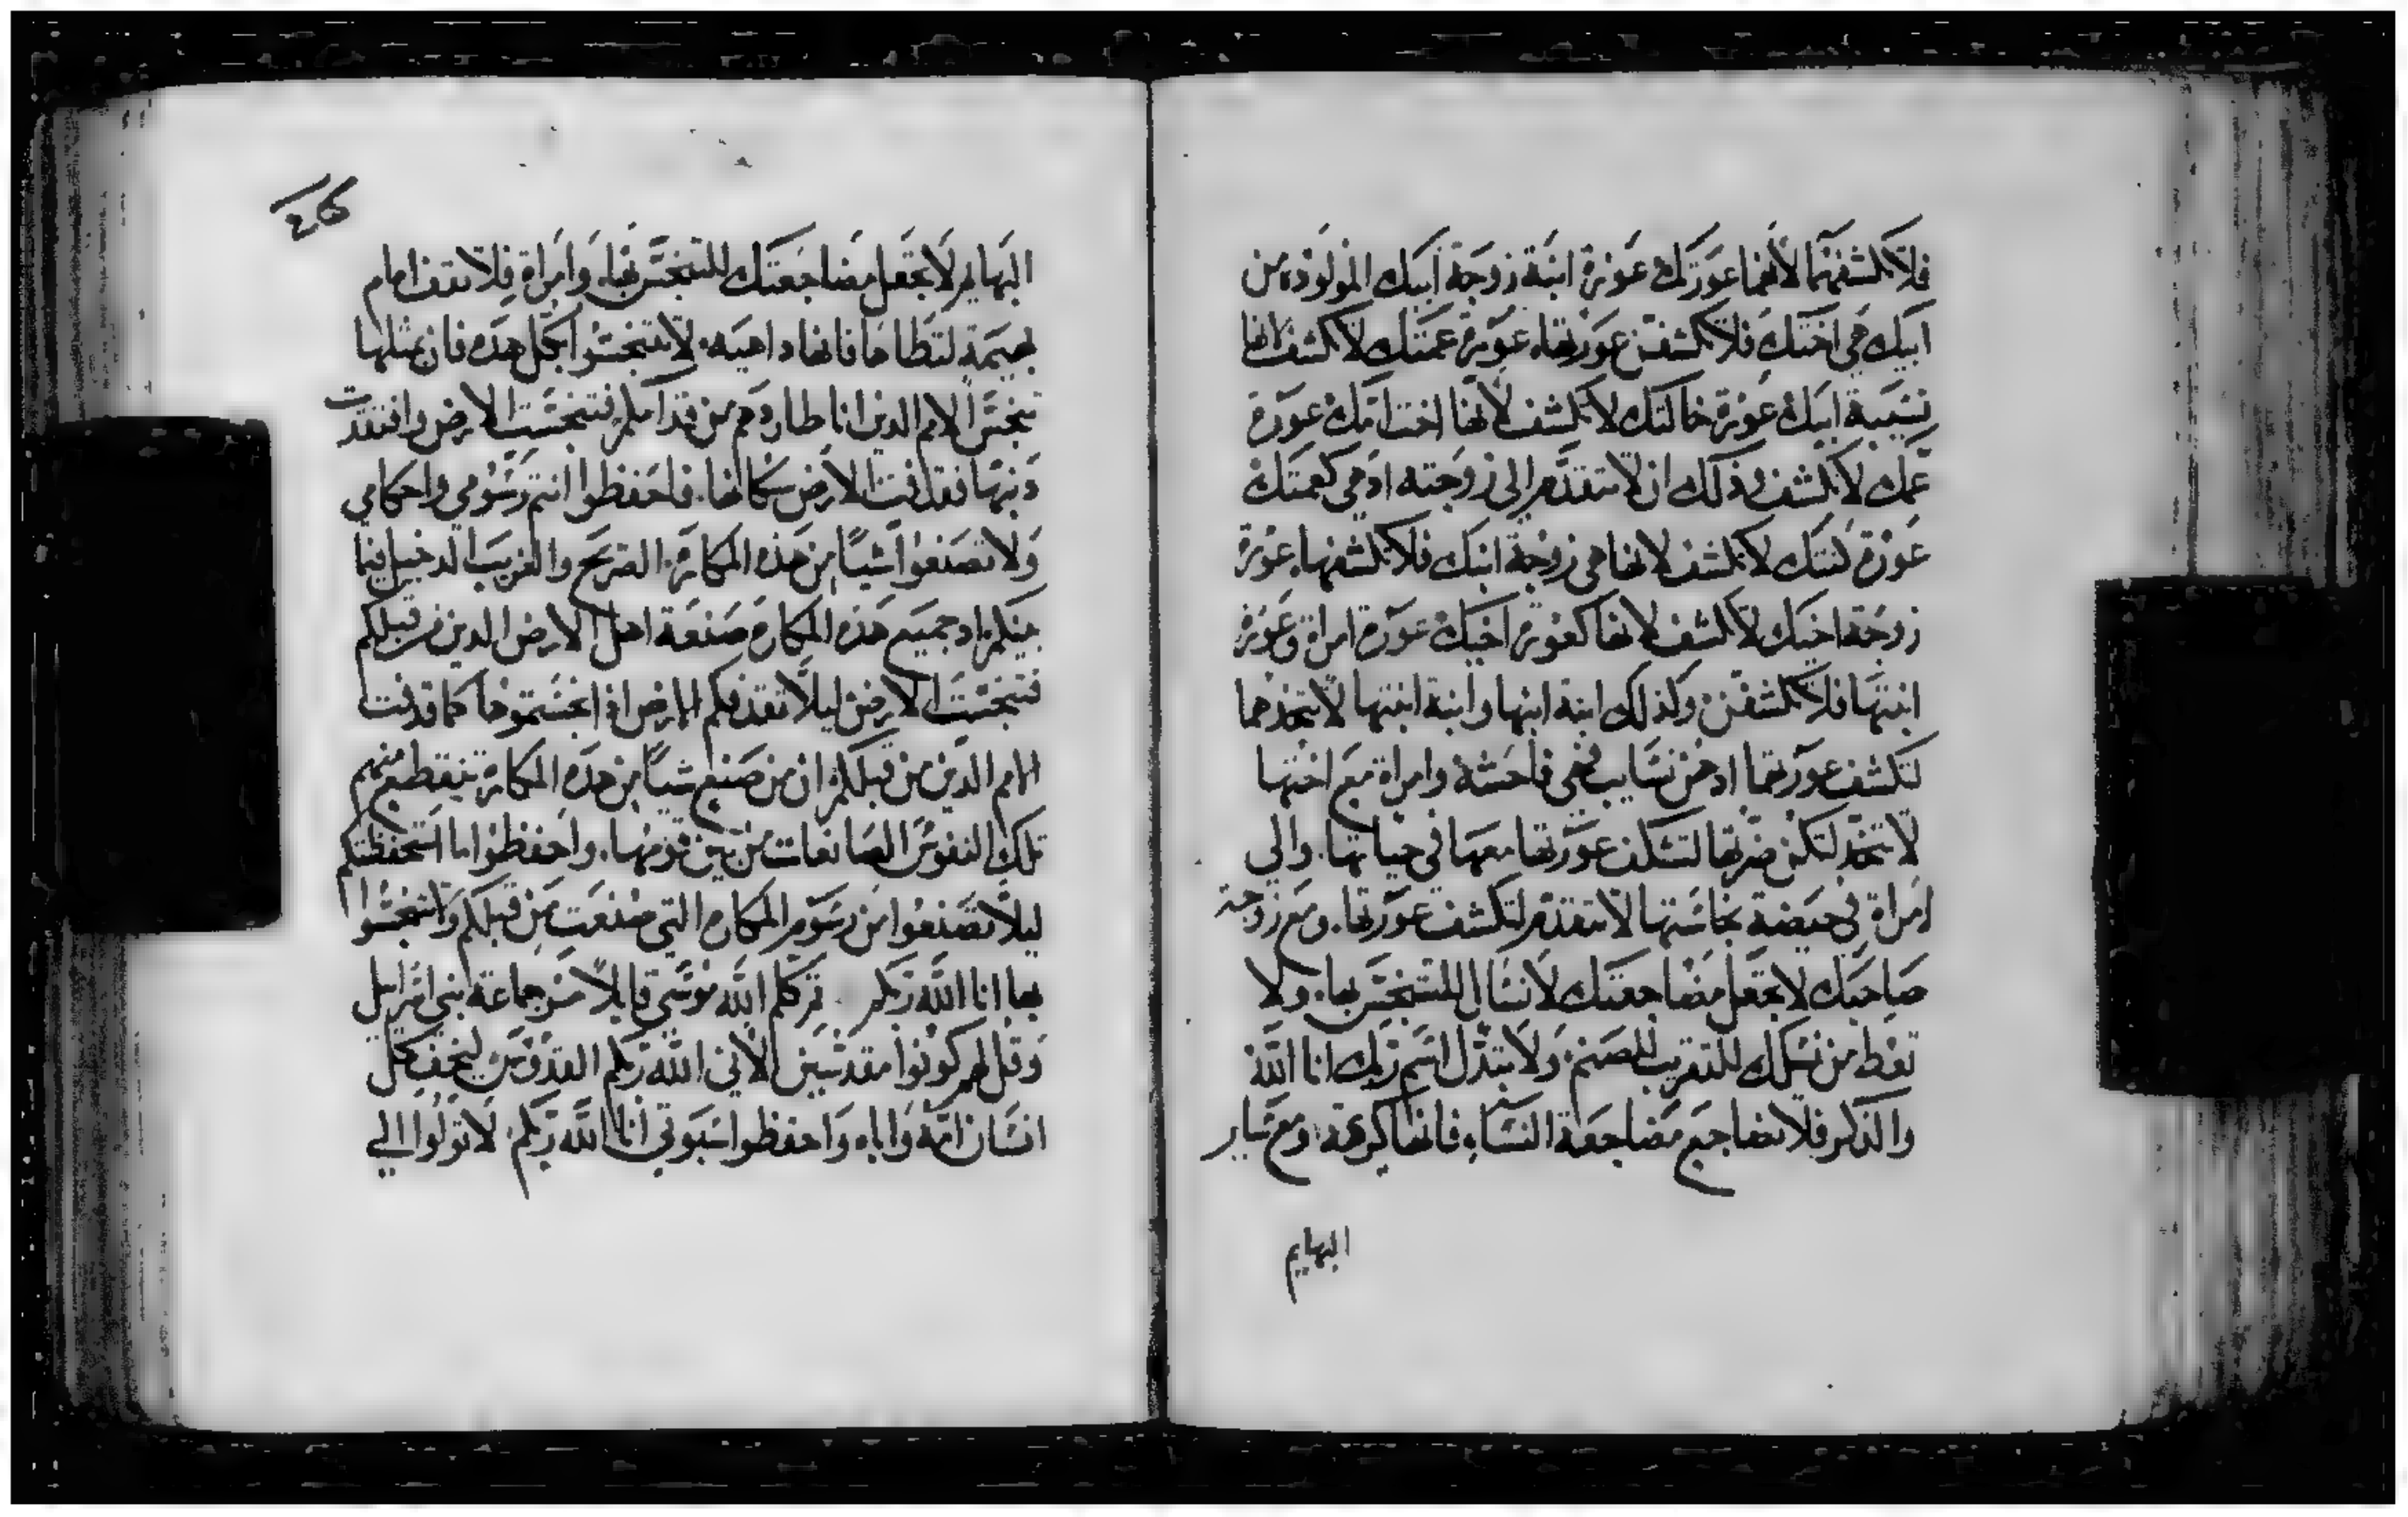 فلا تكشفنهما لأنهما عورتك عورة ابنة زوجة ابيك المولودة من
ابيك هي اختك فلا تكشفن عورتها. عورة عمتك لا تكشف لانها
نسيبة ابيك عورة خالتك لا تكشف لأنها اخت امك عورة
عمك لا تكشف وذلك ان لا تتقدم الى زوجته اذ هي كعمتك
عورة كنتك لا تكشف لانها هي زوجة ابنك فلا تكشفنها. عورة
زوجة اخيك لا تكشف لانها كعورة اخيك عورة امراة وعورة
ابنتها فلا تكشفن وكذلك ابنة ابنها وابنة ابنتها لا تتخذهما
لتكشف عورتهما اذ هن نسايب فهي فاحشة وامراة مع اختها
لا تتخذ لتكن ضرتها لتشكف عورتها معها في حياتها. والى
امراة في حيضة نجاستها لا تتقدم لتكشف عورتها. ومع زوجة
صاحبك لا تجعل مضاجعتك لانسال للتنجس بها. ولا
تعط من نسلك للتقريب للصنم. ولا تبتذل اسم ربك انا الله
والذكر فلا تضاجع مضاجعة النساء فانها كرهة ومع ساير
البهايم
البهايم لا تجعل مضاجعتك للتنجس بها. وامراة فلا تقف امام
بهيمة لتطاها فانها داهيه. لا تتنجسوا بكل هذه فان بمثلها
تنجس الامم الذين انا طاردهم من قدامكم فتنجست الارض وافتقدت
ذنبها فقذفت الارض سكانها. فاحفظوا انتم رسومي واحكامي
ولا تصنعوا شيًا من هذه المكاره. الصريح والغريب الدخيل فيما
بينكم. اذ جميع هذه المكاره صنعة اهل الارض الذين من قبلكم
فتنجست الارض ليلا تقذفكم الارض اذ انجستموها كما قذفت
الامم الذين من قبلكم. ان من صنع شيًا من هذه المكاره ينقطع منهم
تلك النفوس الصانعات من بين قومها. واحفظوا ما استحفظتكم
ليلا تصنعوا من رسوم المكاره التي صنعت من قبلكم ولا تتنجسوا
بها انا الله ربكم. ثم كلم الله موسى قايلا مر جماعة بني اسرايل
وقل لهم كونوا مقدسين لأني الله ربكم القدوس ليخف كل
انسان امه واباه واحفظوا سبوتي انا الله ربكم. لا تولوا الى